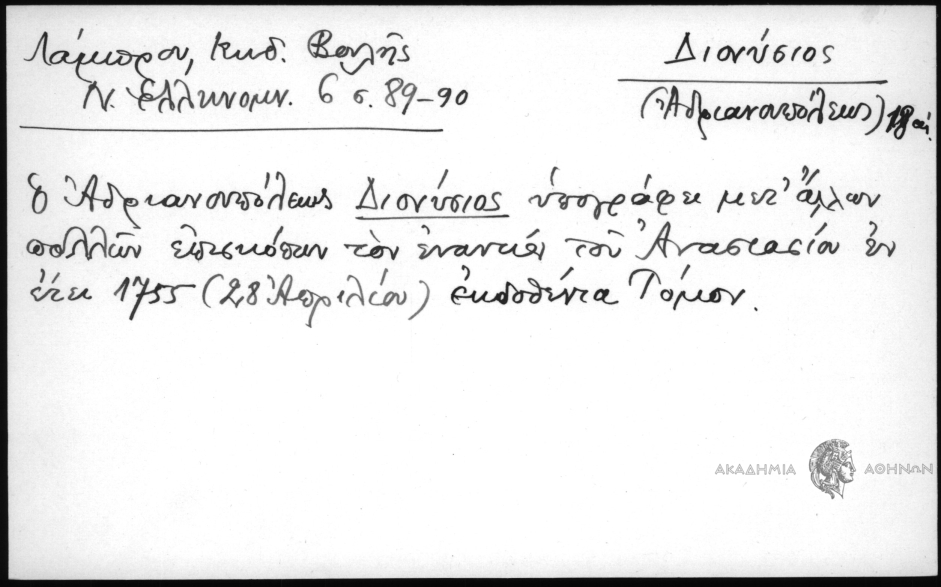 Λάμπρου, Κωδ. Βουλῆς
Ν. Ἑλληνομν. 6 σ. 89-90
Διονύσιος
(Ἀδριανουπόλεως) 18 αἰ.
ὁ Ἀδριανουπόλεως Διονύσιος ὑπογράφει μετ' ἄλλων
πολλῶν ἐπισκόπων τὸν ἐναντίον τοῦ Ἀναστασίου ἐν
ἔτει 1755 (28 Ἀπριλίου) ἐκδοθέντα Τόμον.
ΑΚΑΔΗΜΙΑ ΑΘΗΝΩΝ